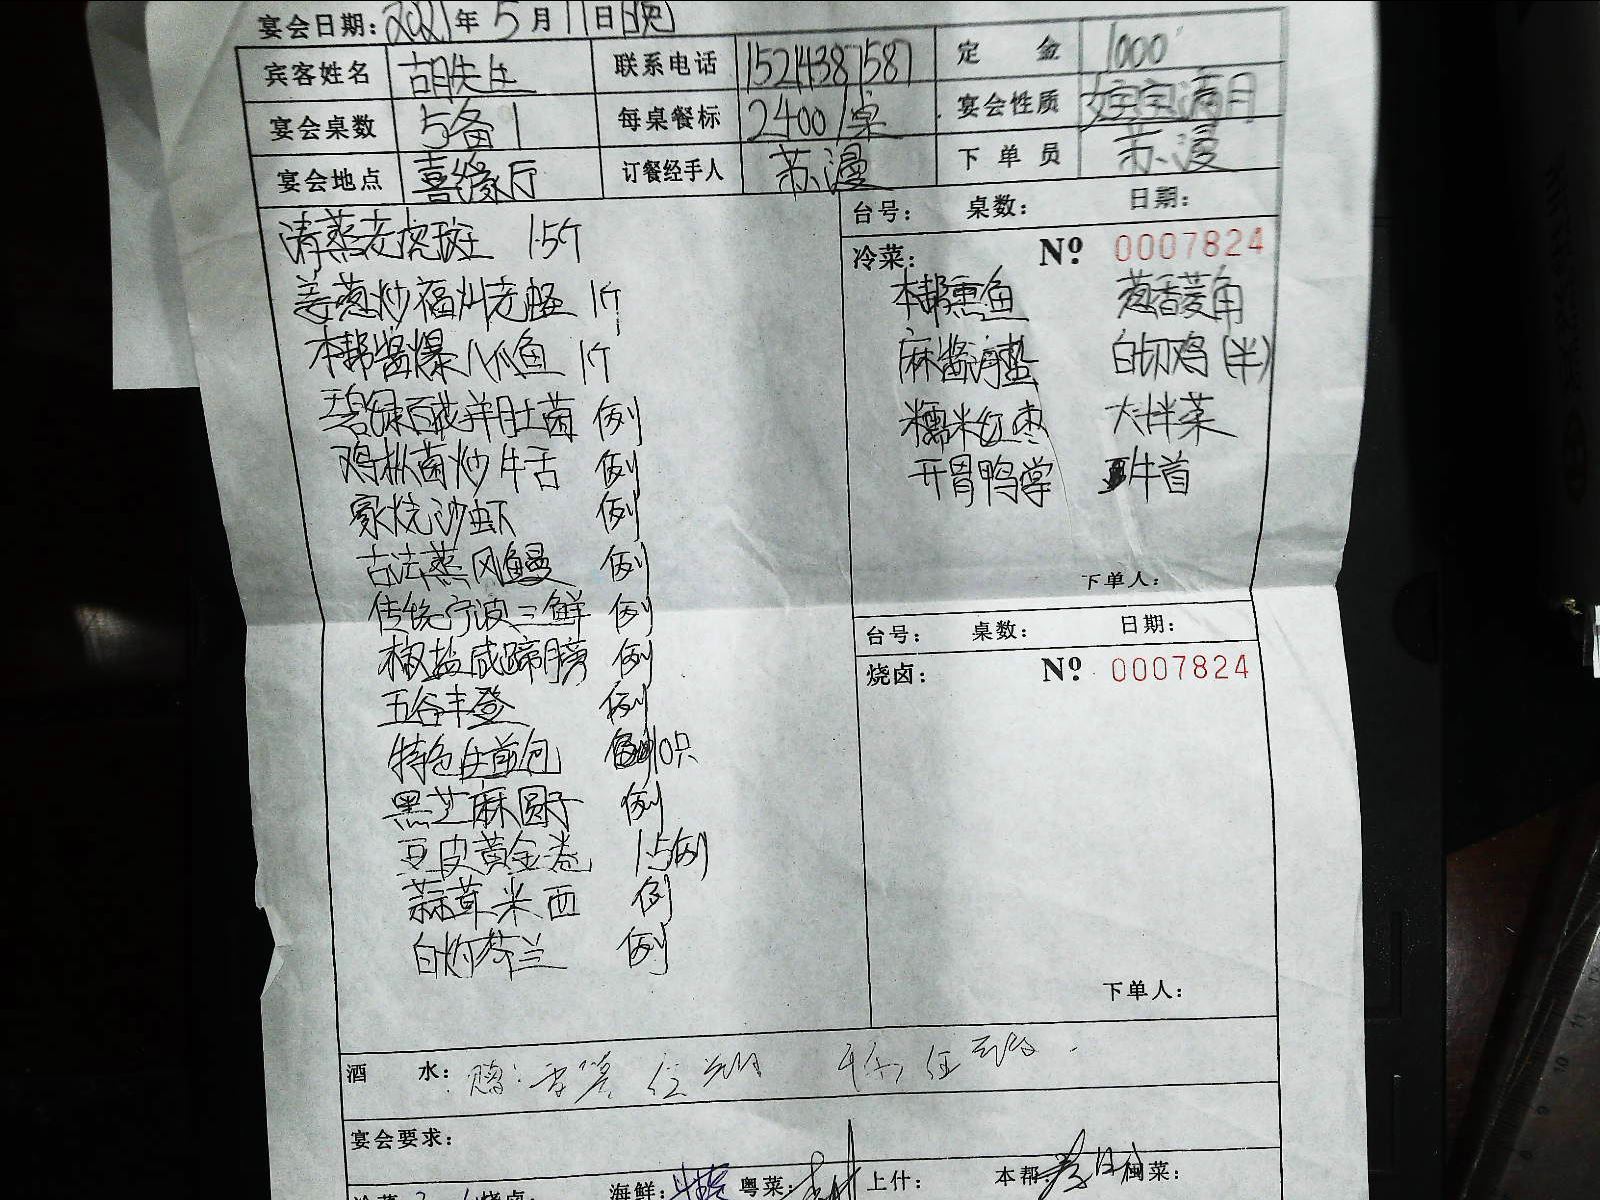 宴会日期:2021年5月11日(晚)
宾客姓名 胡先生 联系电话 15214387587 定金 1000
宴会桌数 5备1 每桌餐标 2400/桌 宴会性质 宝宝满月
宴会地点 喜缘厅 订餐经手人 苏漫 下单员 苏漫
台号: 桌数: 日期:
冷菜: Nº 0007824
本帮熏鱼 葱香菱角
麻酱海蜇 白切鸡(半)
糯米红枣 大拌菜
开胃鸭掌 牛首
下单人:
清蒸老虎斑 1.5斤
姜葱炒福灿老蛏 1斤
本帮酱爆八爪鱼 1斤
碧绿百花羊肚菌 例
鸡枞菌炒牛舌 例
家烧沙虾 例
古法蒸风鳗 例
传统宁波三鲜 例
椒盐咸蹄膀 例
五谷丰登 例
特色生煎包 10只
黑芝麻圆子 例
豆皮黄金卷 1.5例
蒜茸米西 例
白灼芥兰 例
台号: 桌数: 日期:
烧卤: Nº 0007824
下单人:
酒水:
宴会要求:
海鲜: 粤菜: 上什: 本帮: 闽菜: